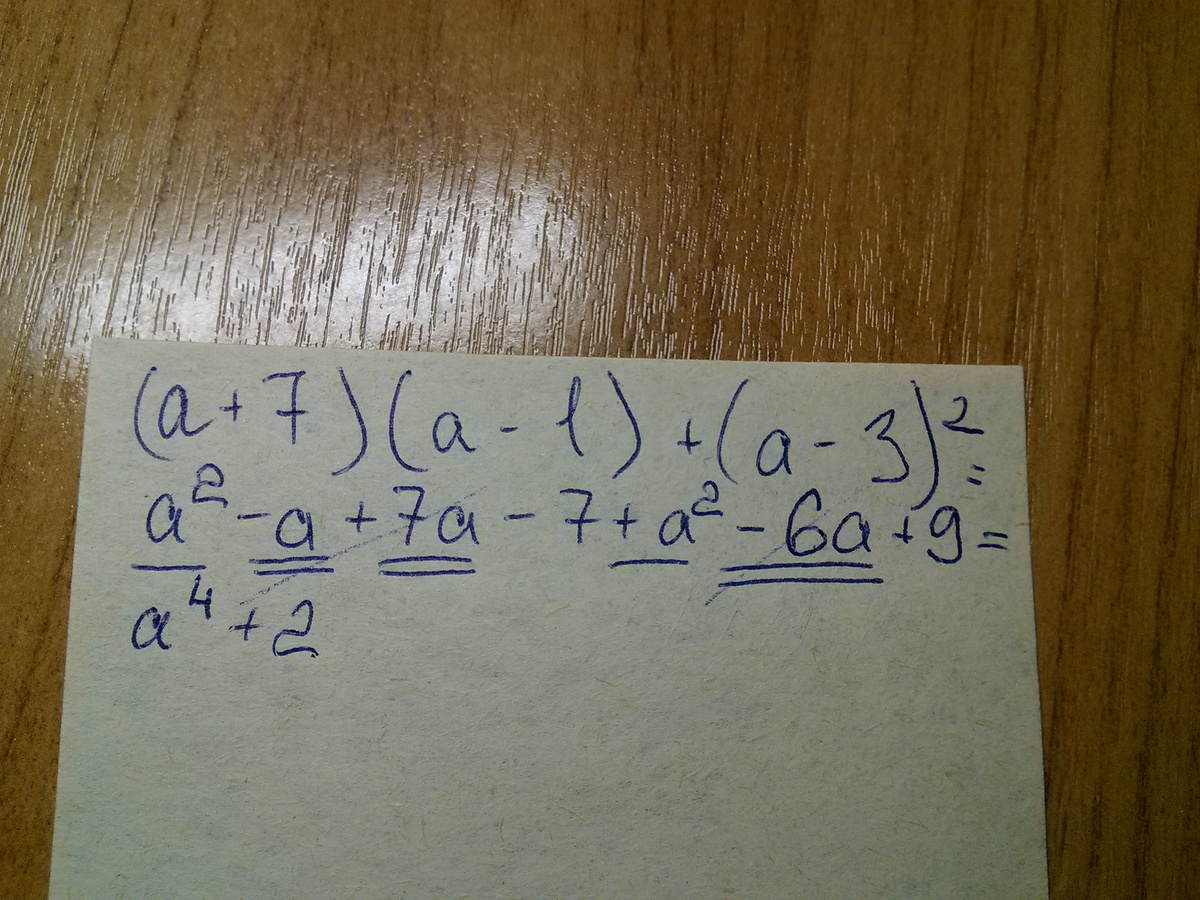 (a+7)(a-1)+(a-3)²=
a²-a+7a-7+a²-6a+9=
a⁴+2